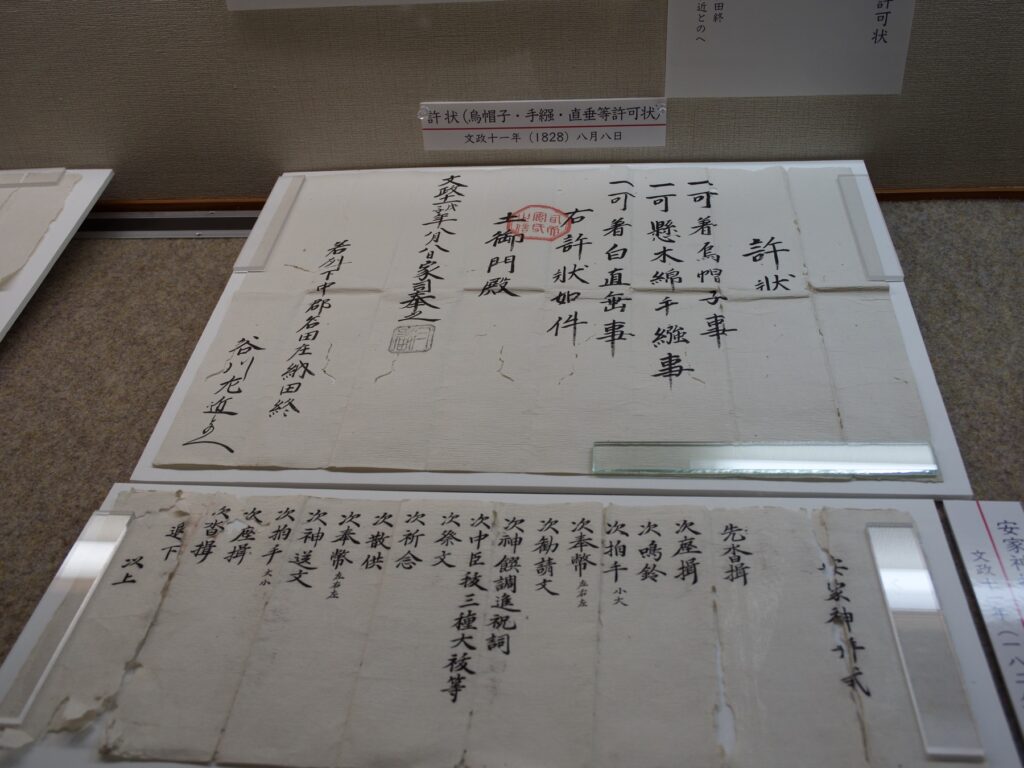 許可状
田終
近とのへ
許状(烏帽子・手繦・直垂等許可状)
文政十一年(1828)八月八日
許状
一可著烏帽子事
一可懸木綿手繦事
一可著白直垂事
右許状如件
土御門殿
文政十一戊子年八月八日家司奉之
若州下中郡名田庄納田終
谷川左近とのへ
安家神行式
先沓揖
次座揖
次鳴鈴
次拍手 小大
次奉幣 左右左
次勧請文
次神饌調進祝詞
次中臣祓三種大祓等
次祭文
次祈念
次散供
次奉幣 左右左
次神送文
次拍手 大小
次座揖
次沓揖
退下
以上
安家神
文政十一年(一八二八